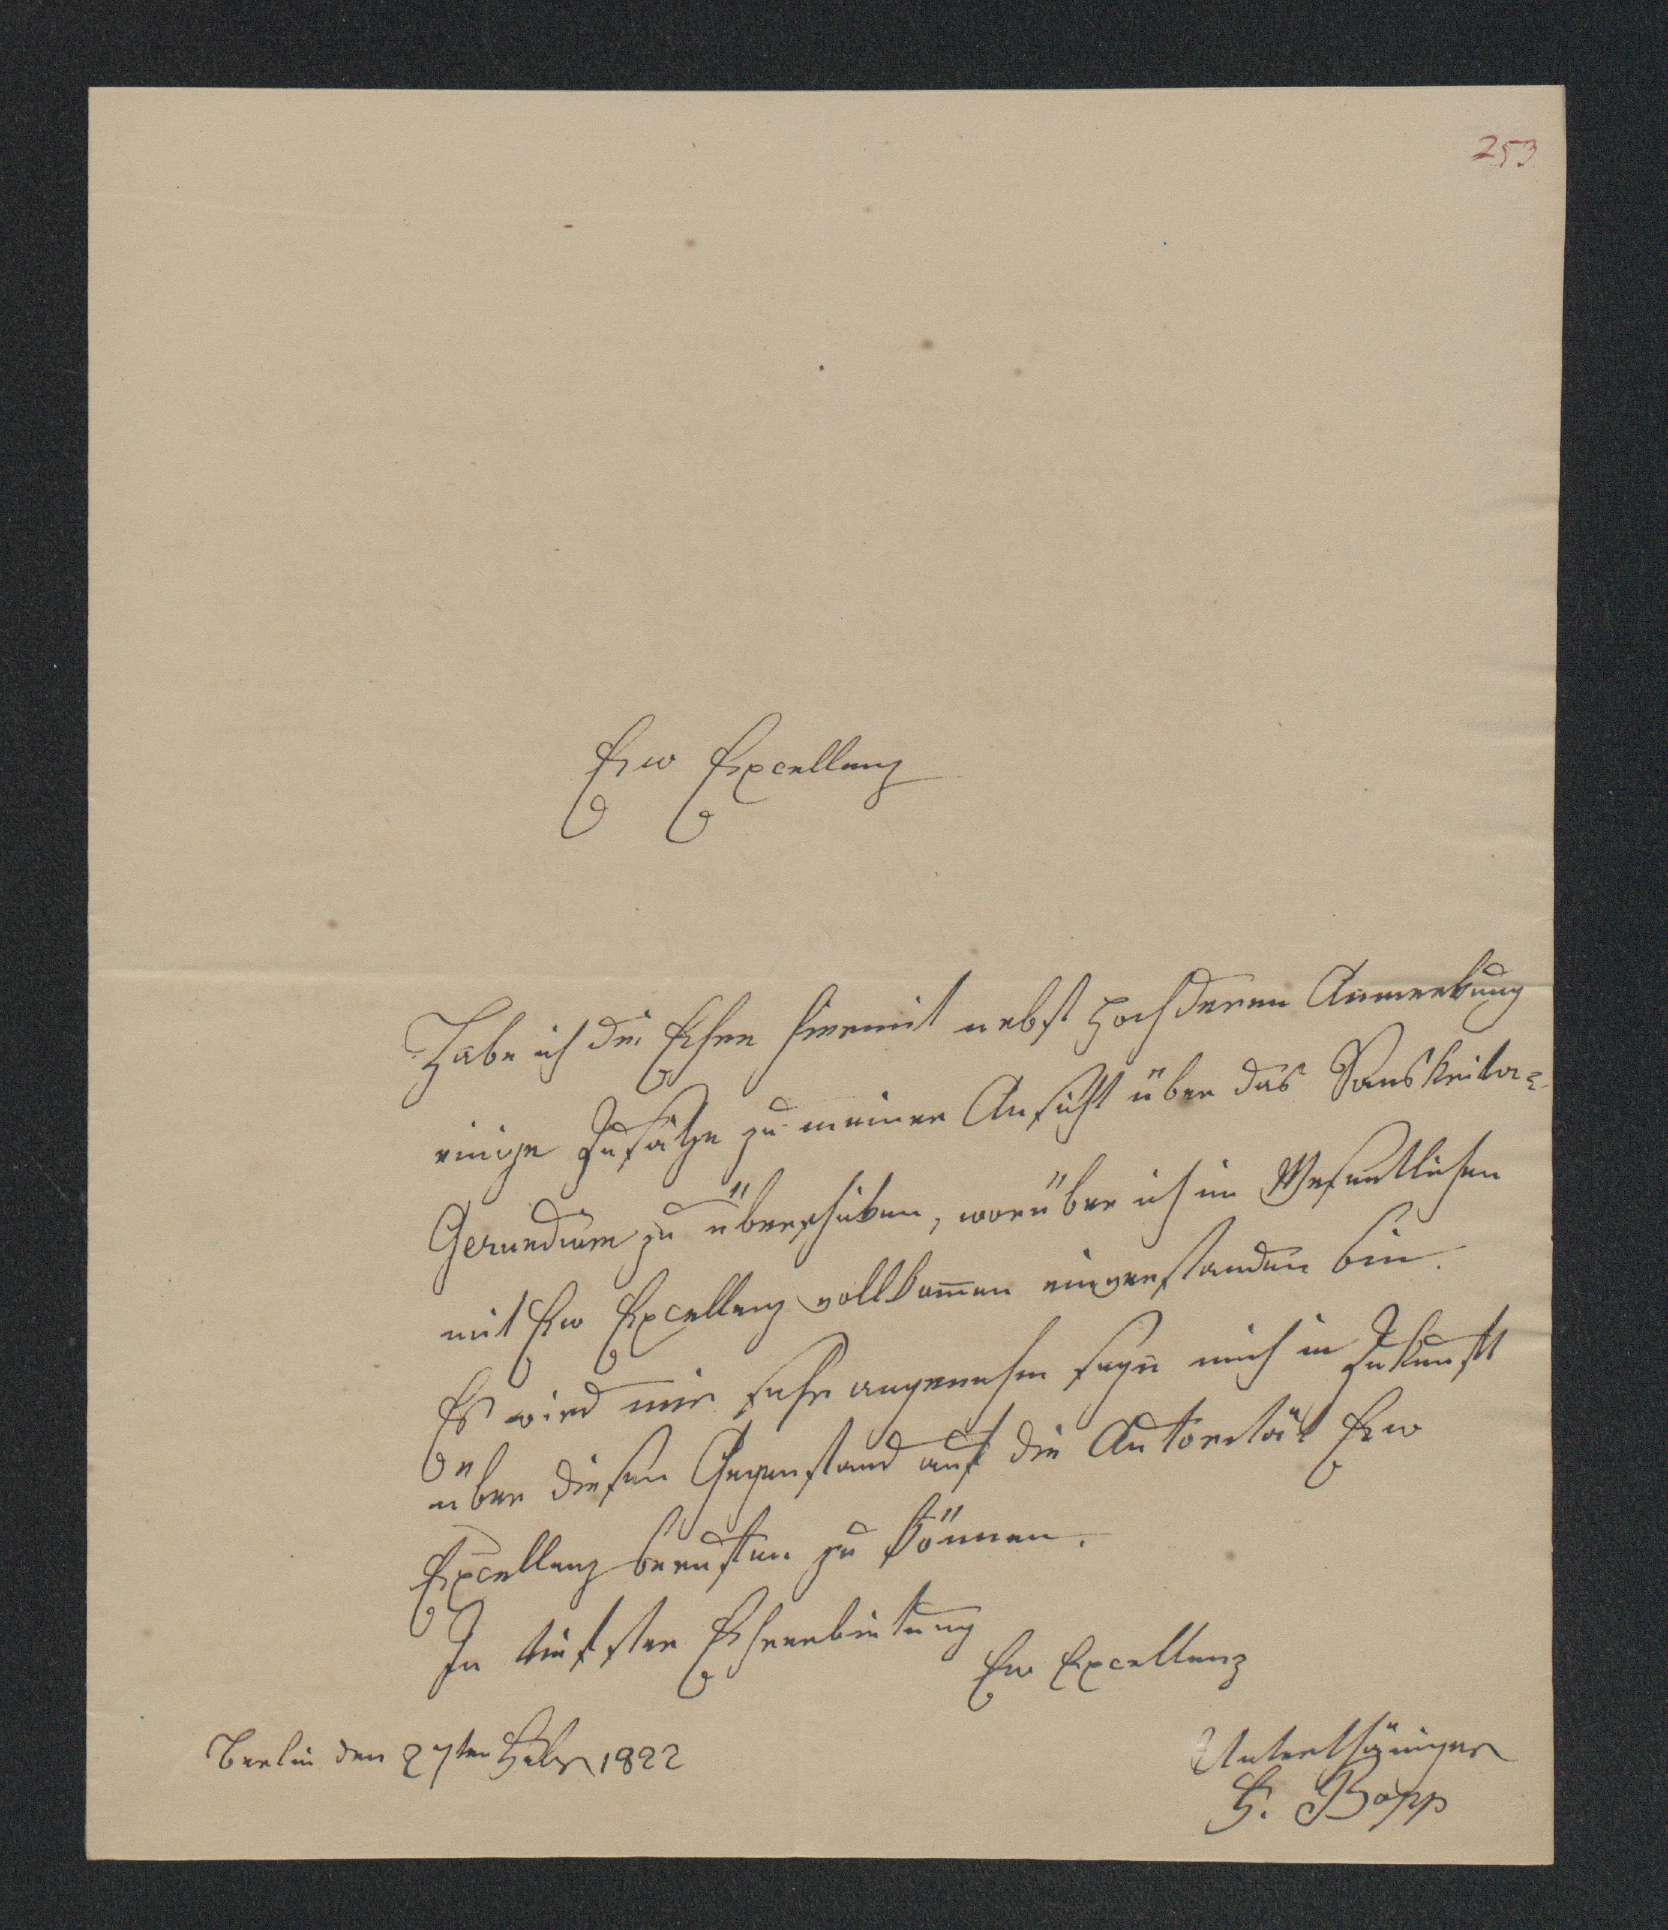 253
Ew Excellenz
Habe ich die Ehre hiermit nebst Hochderen Anmerkung
einige Zusätze zu meiner Ansicht über das Sanskrita=
Gerundium zu überschicken, worüber ich im Wesentlichen
mit Ew Excellenz vollkom̄en einverstanden bin.
Es wird mir sehr angenehm seyn mich in Zukunft
über diesen Gegenstand auf die Autorität Ew
Excellenz berufen zu können.
In tiefster Ehrerbietung
Ew Excellenz
Berlin den 27ten Febr 1822
Unterthäniger
F. Bopp